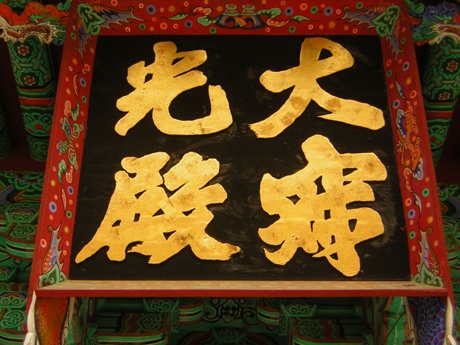 大寂
光殿